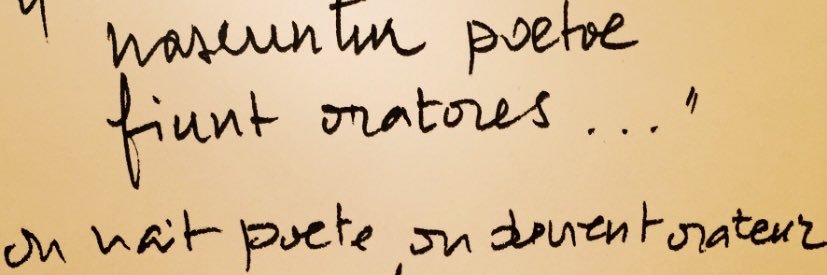 " nascuntur poetae
fiunt oratores ... "
on naît poete, on devient orateur